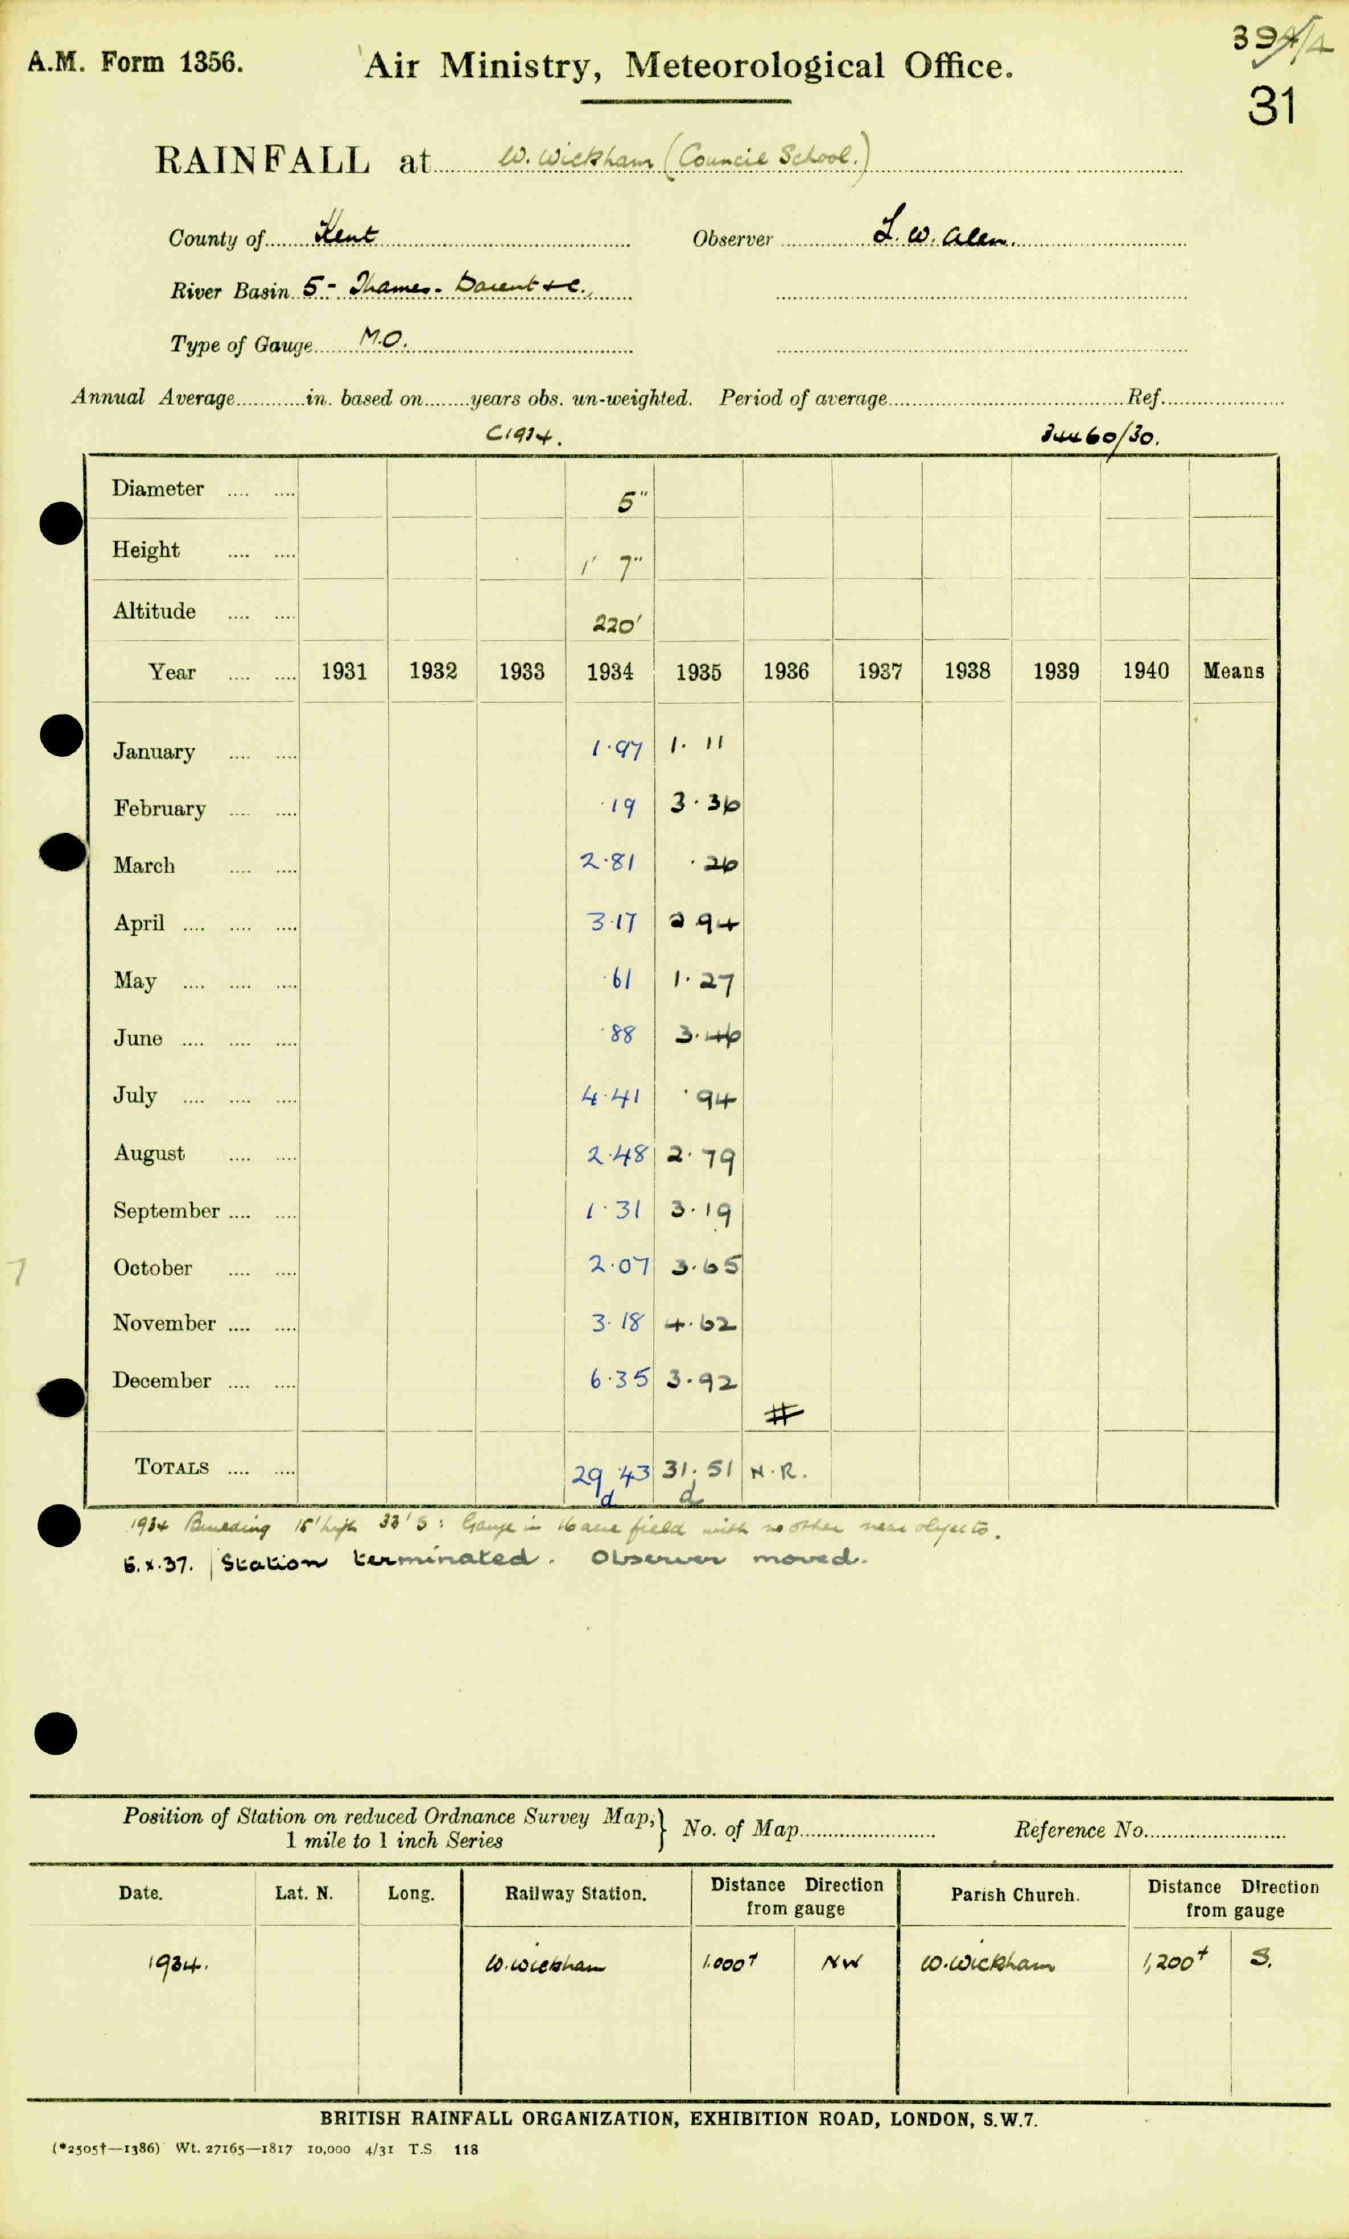 A.M. Form 1356.
Air Ministry, Meteorological Office.
31
RAINFALL at W. Wickham (Council School.)
County of Kent Observer L. W. Allen.
River Basin 5 - Thames - Darent &c.
Type of Gauge M.O.
Annual Average............in. based on........years obs. un-weighted. Period of average.................... Ref....................
C1934. 34460/30.
Diameter .... .... 5"
Height .... .... 1' 7"
Altitude .... .... 220'
Year .... .... 1931 1932 1933 1934 1935 1936 1937 1938 1939 1940 Means
January .... .... 1.97 1.11
February .... .... .19 3.36
March .... .... 2.81 .26
April .... .... .... 3.17 2.94
May .... .... .... .61 1.27
June .... .... .... .88 3.46
July .... .... .... 4.41 .94
August .... .... 2.48 2.79
September .... .... 1.31 3.19
October .... .... 2.07 3.65
November .... .... 3.18 4.62
December .... .... 6.35 3.92
#
TOTALS .... .... 29.43 31.51 N.R.
d d
1934 Building 15' high 33' S: Gauge in 16 acre field with no other near objects.
5.x.37. Station terminated. Observer moved.
Position of Station on reduced Ordnance Survey Map, 1 mile to 1 inch Series } No. of Map........................ Reference No.........................
Date. Lat. N. Long. Railway Station. Distance Direction from gauge Parish Church. Distance Direction from gauge
1934. W. Wickham 1,000+ NW W. Wickham 1,200+ S.
BRITISH RAINFALL ORGANIZATION, EXHIBITION ROAD, LONDON, S.W.7.
(*2505†—1386) Wt. 27165—1817 10,000 4/31 T.S 118